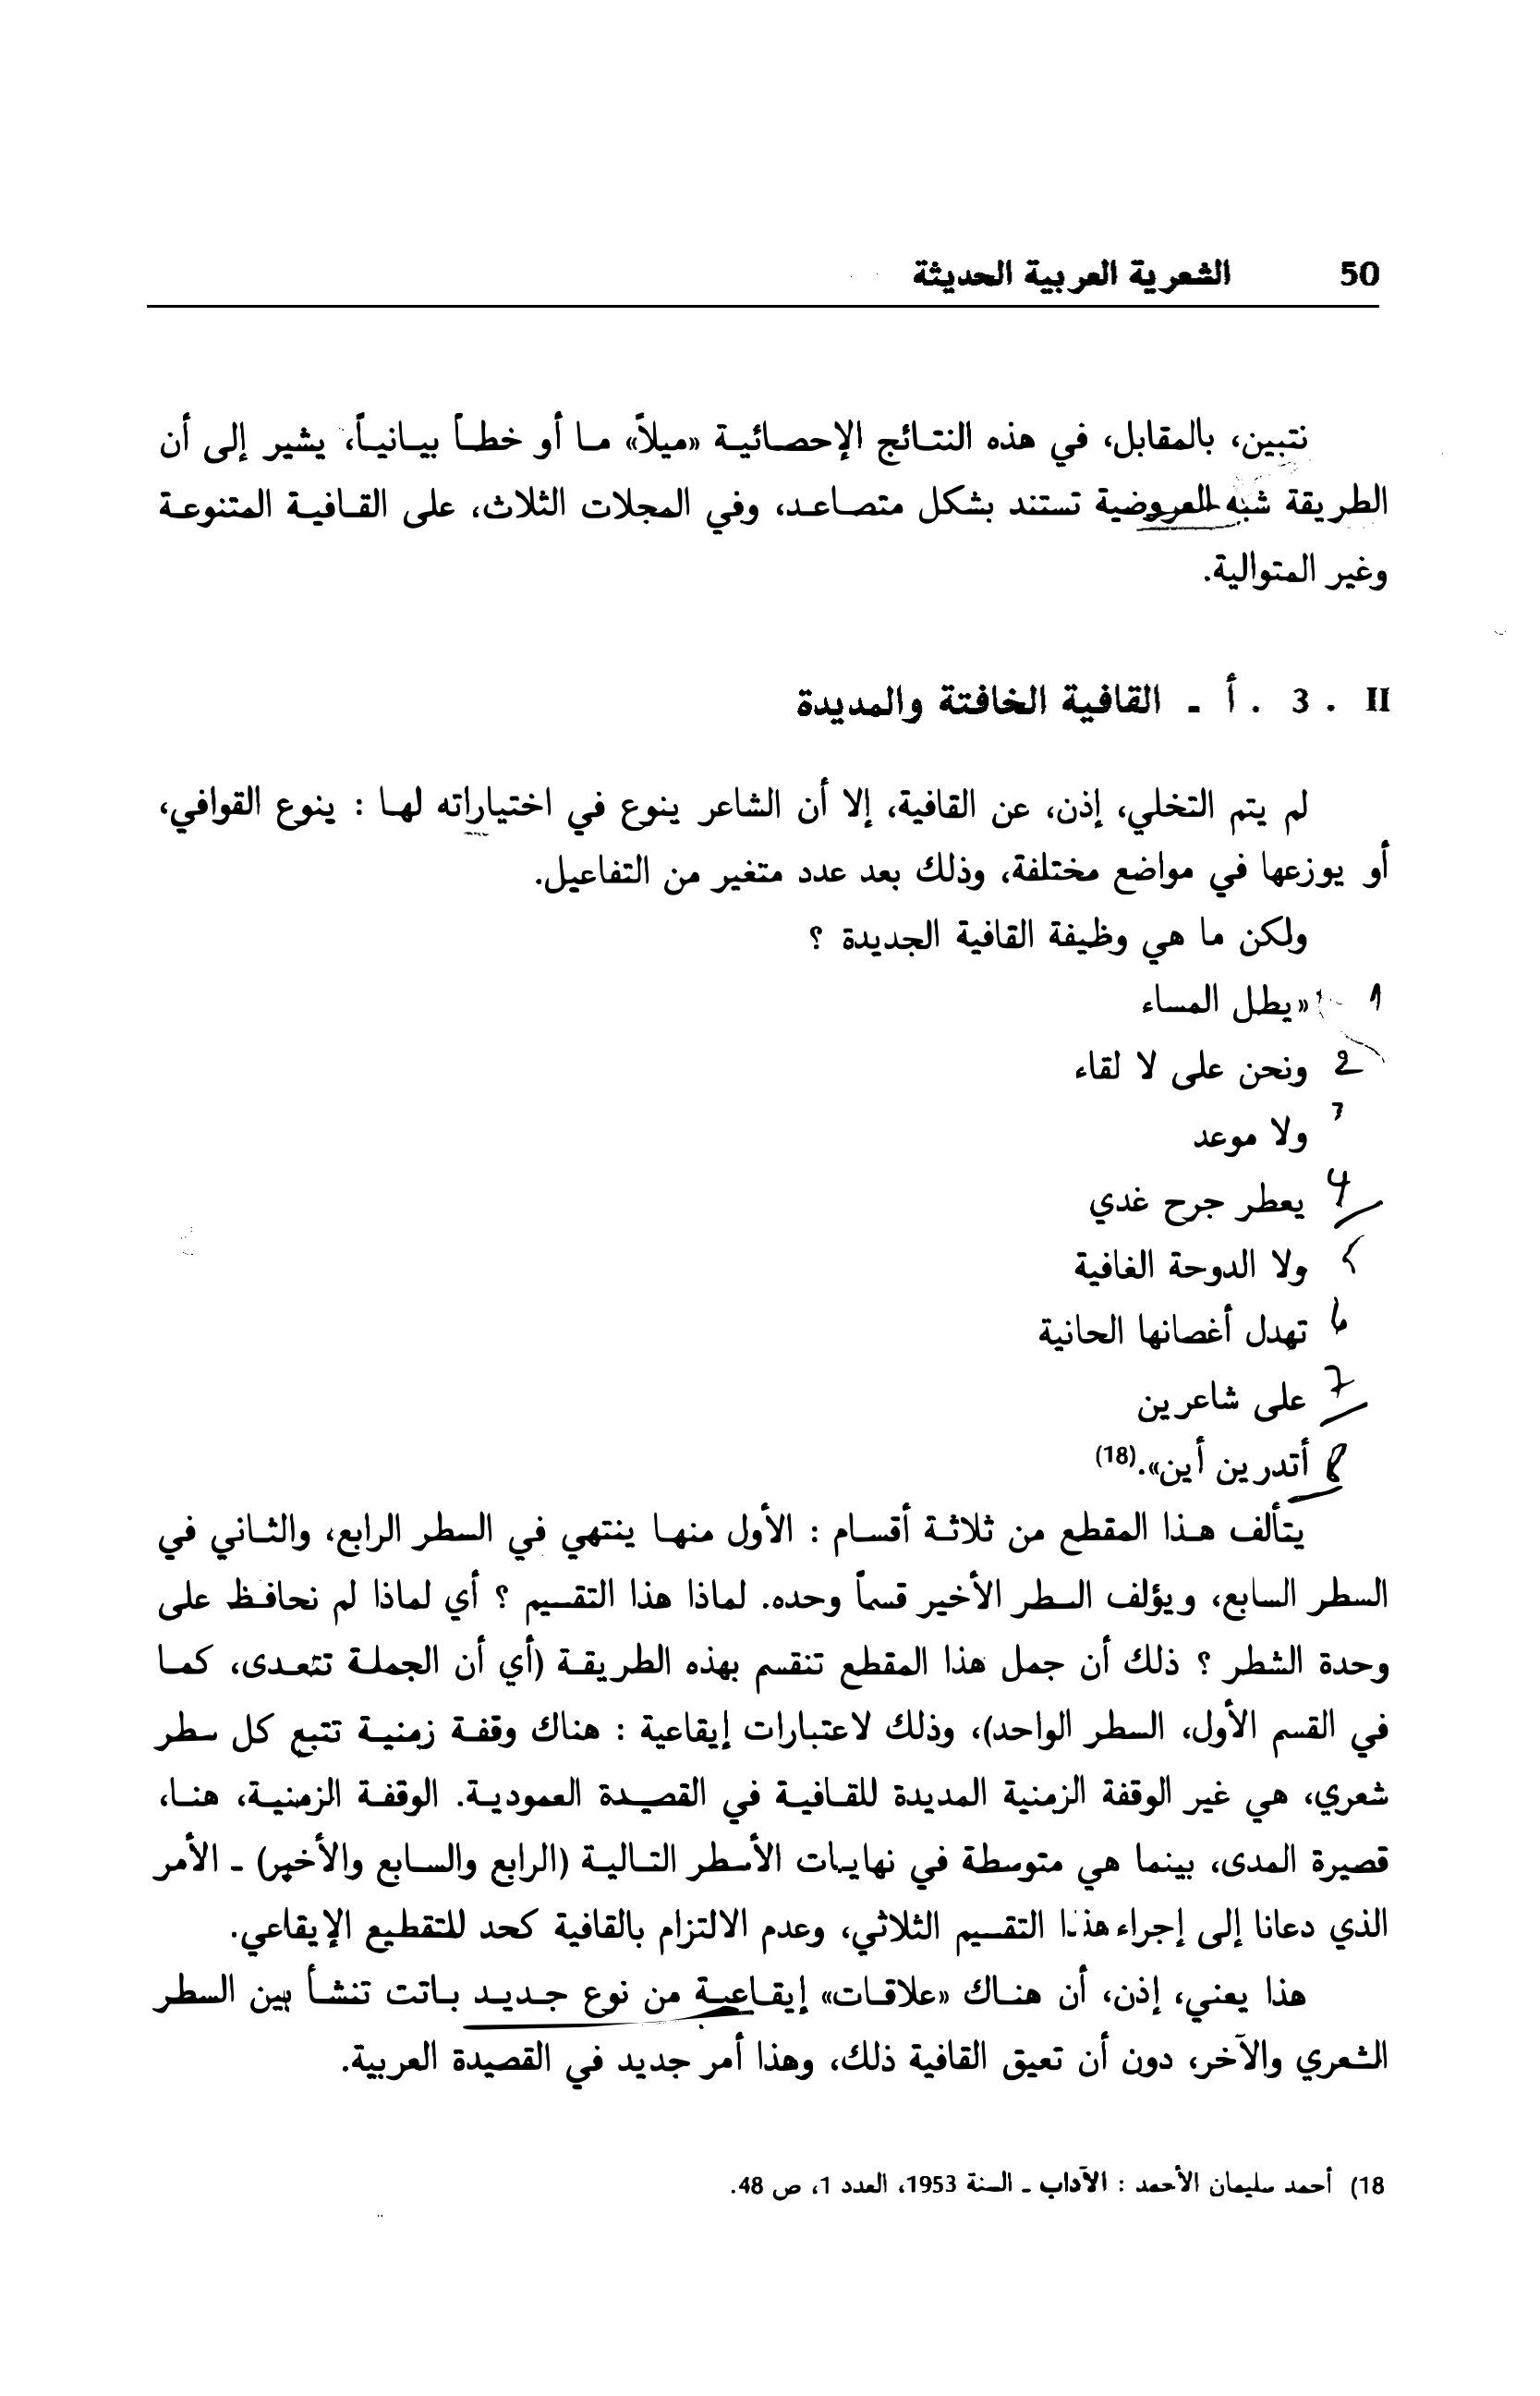 50 الشعرية العربية الحديثة
نتبين، بالمقابل، في هذه النتائج الإحصائية «ميلاً» ما أو خطاً بيانياً، يشير إلى أن
الطريقة شبه العروضية تستند بشكل متصاعد، وفي المجلات الثلاث، على القافية المتنوعة
وغير المتوالية.
II . 3 . أ - القافية الخافتة والمديدة
لم يتم التخلي، إذن، عن القافية، إلا أن الشاعر ينوع في اختياراته لها : ينوع القوافي،
أو يوزعها في مواضع مختلفة، وذلك بعد عدد متغير من التفاعيل.
ولكن ما هي وظيفة القافية الجديدة ؟
1 «يطل المساء
2 ونحن على لا لقاء
3 ولا موعد
4 يعطر جرح غدي
5 ولا الدوحة الغافية
6 تهدل أغصانها الحانية
7 على شاعرين
8 أتدرين أين».(18)
يتألف هذا المقطع من ثلاثة أقسام : الأول منها ينتهي في السطر الرابع، والثاني في
السطر السابع، ويؤلف السطر الأخير قسماً وحده. لماذا هذا التقسيم ؟ أي لماذا لم نحافظ على
وحدة الشطر ؟ ذلك أن جمل هذا المقطع تنقسم بهذه الطريقة (أي أن الجملة تتعدى، كما
في القسم الأول، السطر الواحد)، وذلك لاعتبارات إيقاعية : هناك وقفة زمنية تتبع كل سطر
شعري، هي غير الوقفة الزمنية المديدة للقافية في القصيدة العمودية. الوقفة الزمنية، هنا،
قصيرة المدى، بينما هي متوسطة في نهايات الأسطر التالية (الرابع والسابع والأخير) - الأمر
الذي دعانا إلى إجراء هذا التقسيم الثلاثي، وعدم الالتزام بالقافية كحد للتقطيع الإيقاعي.
هذا يعني، إذن، أن هناك «علاقات» إيقاعية من نوع جديد باتت تنشأ بين السطر
الشعري والآخر، دون أن تعيق القافية ذلك، وهذا أمر جديد في القصيدة العربية.
18) أحمد سليمان الأحمد : الآداب - السنة 1953، العدد 1، ص 48.